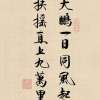 大鹏一日同風起
扶摇直上九萬里